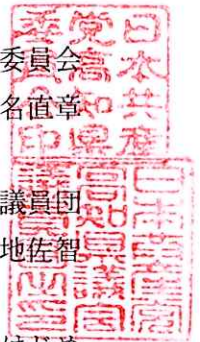 委員会
名直章
議員団
地佐智
日本共産
党高知県
委員会印
日本共産党
高知県議会
議員団